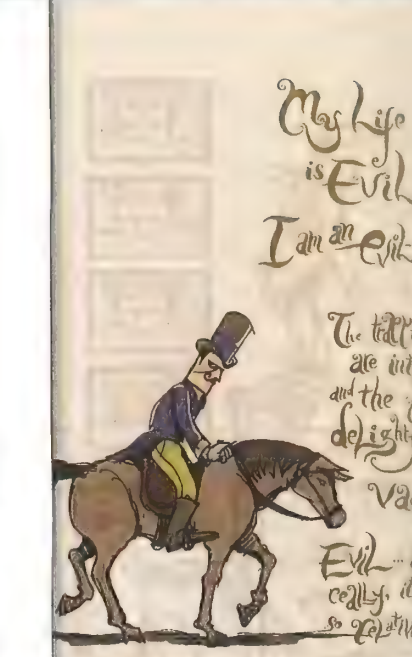 My Life
is Evil
I am an evil
The
are in
and the
delight
va
Evil...
really, it
so relativ